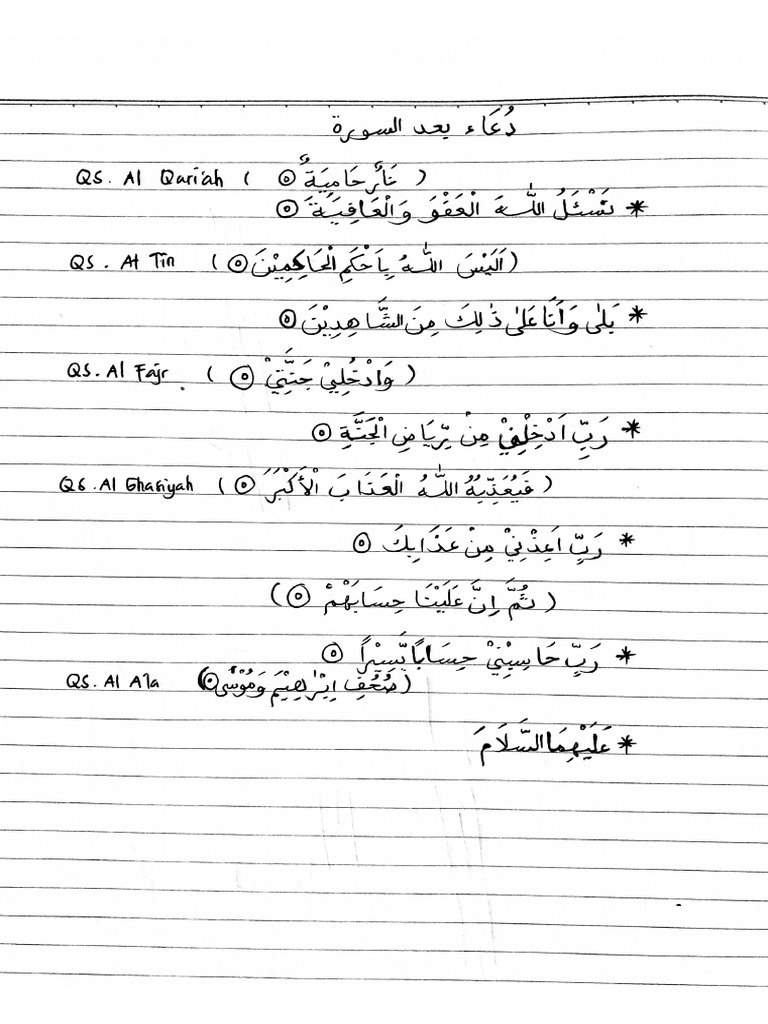 دُعَاء بعد السورة
QS. Al Qari'ah ( نَارٌ حَامِيَةٌ ۝ )
* نَسْئَلُ اللّٰهَ الْعَفْوَ وَالْعَافِيَةَ ۝
QS. At Tin ( اَلَيْسَ اللّٰهُ بِاَحْكَمِ الْحَاكِمِيْنَ ۝ )
* بَلٰى وَأَنَا عَلٰى ذٰلِكَ مِنَ الشَّاهِدِيْنَ ۝
QS. Al Fajr ( وَادْخُلِيْ جَنَّتِيْ ۝ )
* رَبِّ اَدْخِلْنِيْ مِنْ رِّيَاضِ الْجَنَّةِ ۝
QS. Al Ghasiyah ( فَيُعَذِّبُهُ اللّٰهُ الْعَذَابَ الْأَكْبَرَ ۝ )
* رَبِّ اَعِذْنِيْ مِنْ عَذَابِكَ ۝
( ثُمَّ اِنَّ عَلَيْنَا حِسَابَهُمْ ۝ )
* رَبِّ حَاسِبْنِيْ حِسَابًا يَّسِيْرًا ۝
QS. Al A'la ( صُحُفِ اِبْرٰهِيْمَ وَمُوْسٰى ۝ )
* عَلَيْهِمَا السَّلَامَ